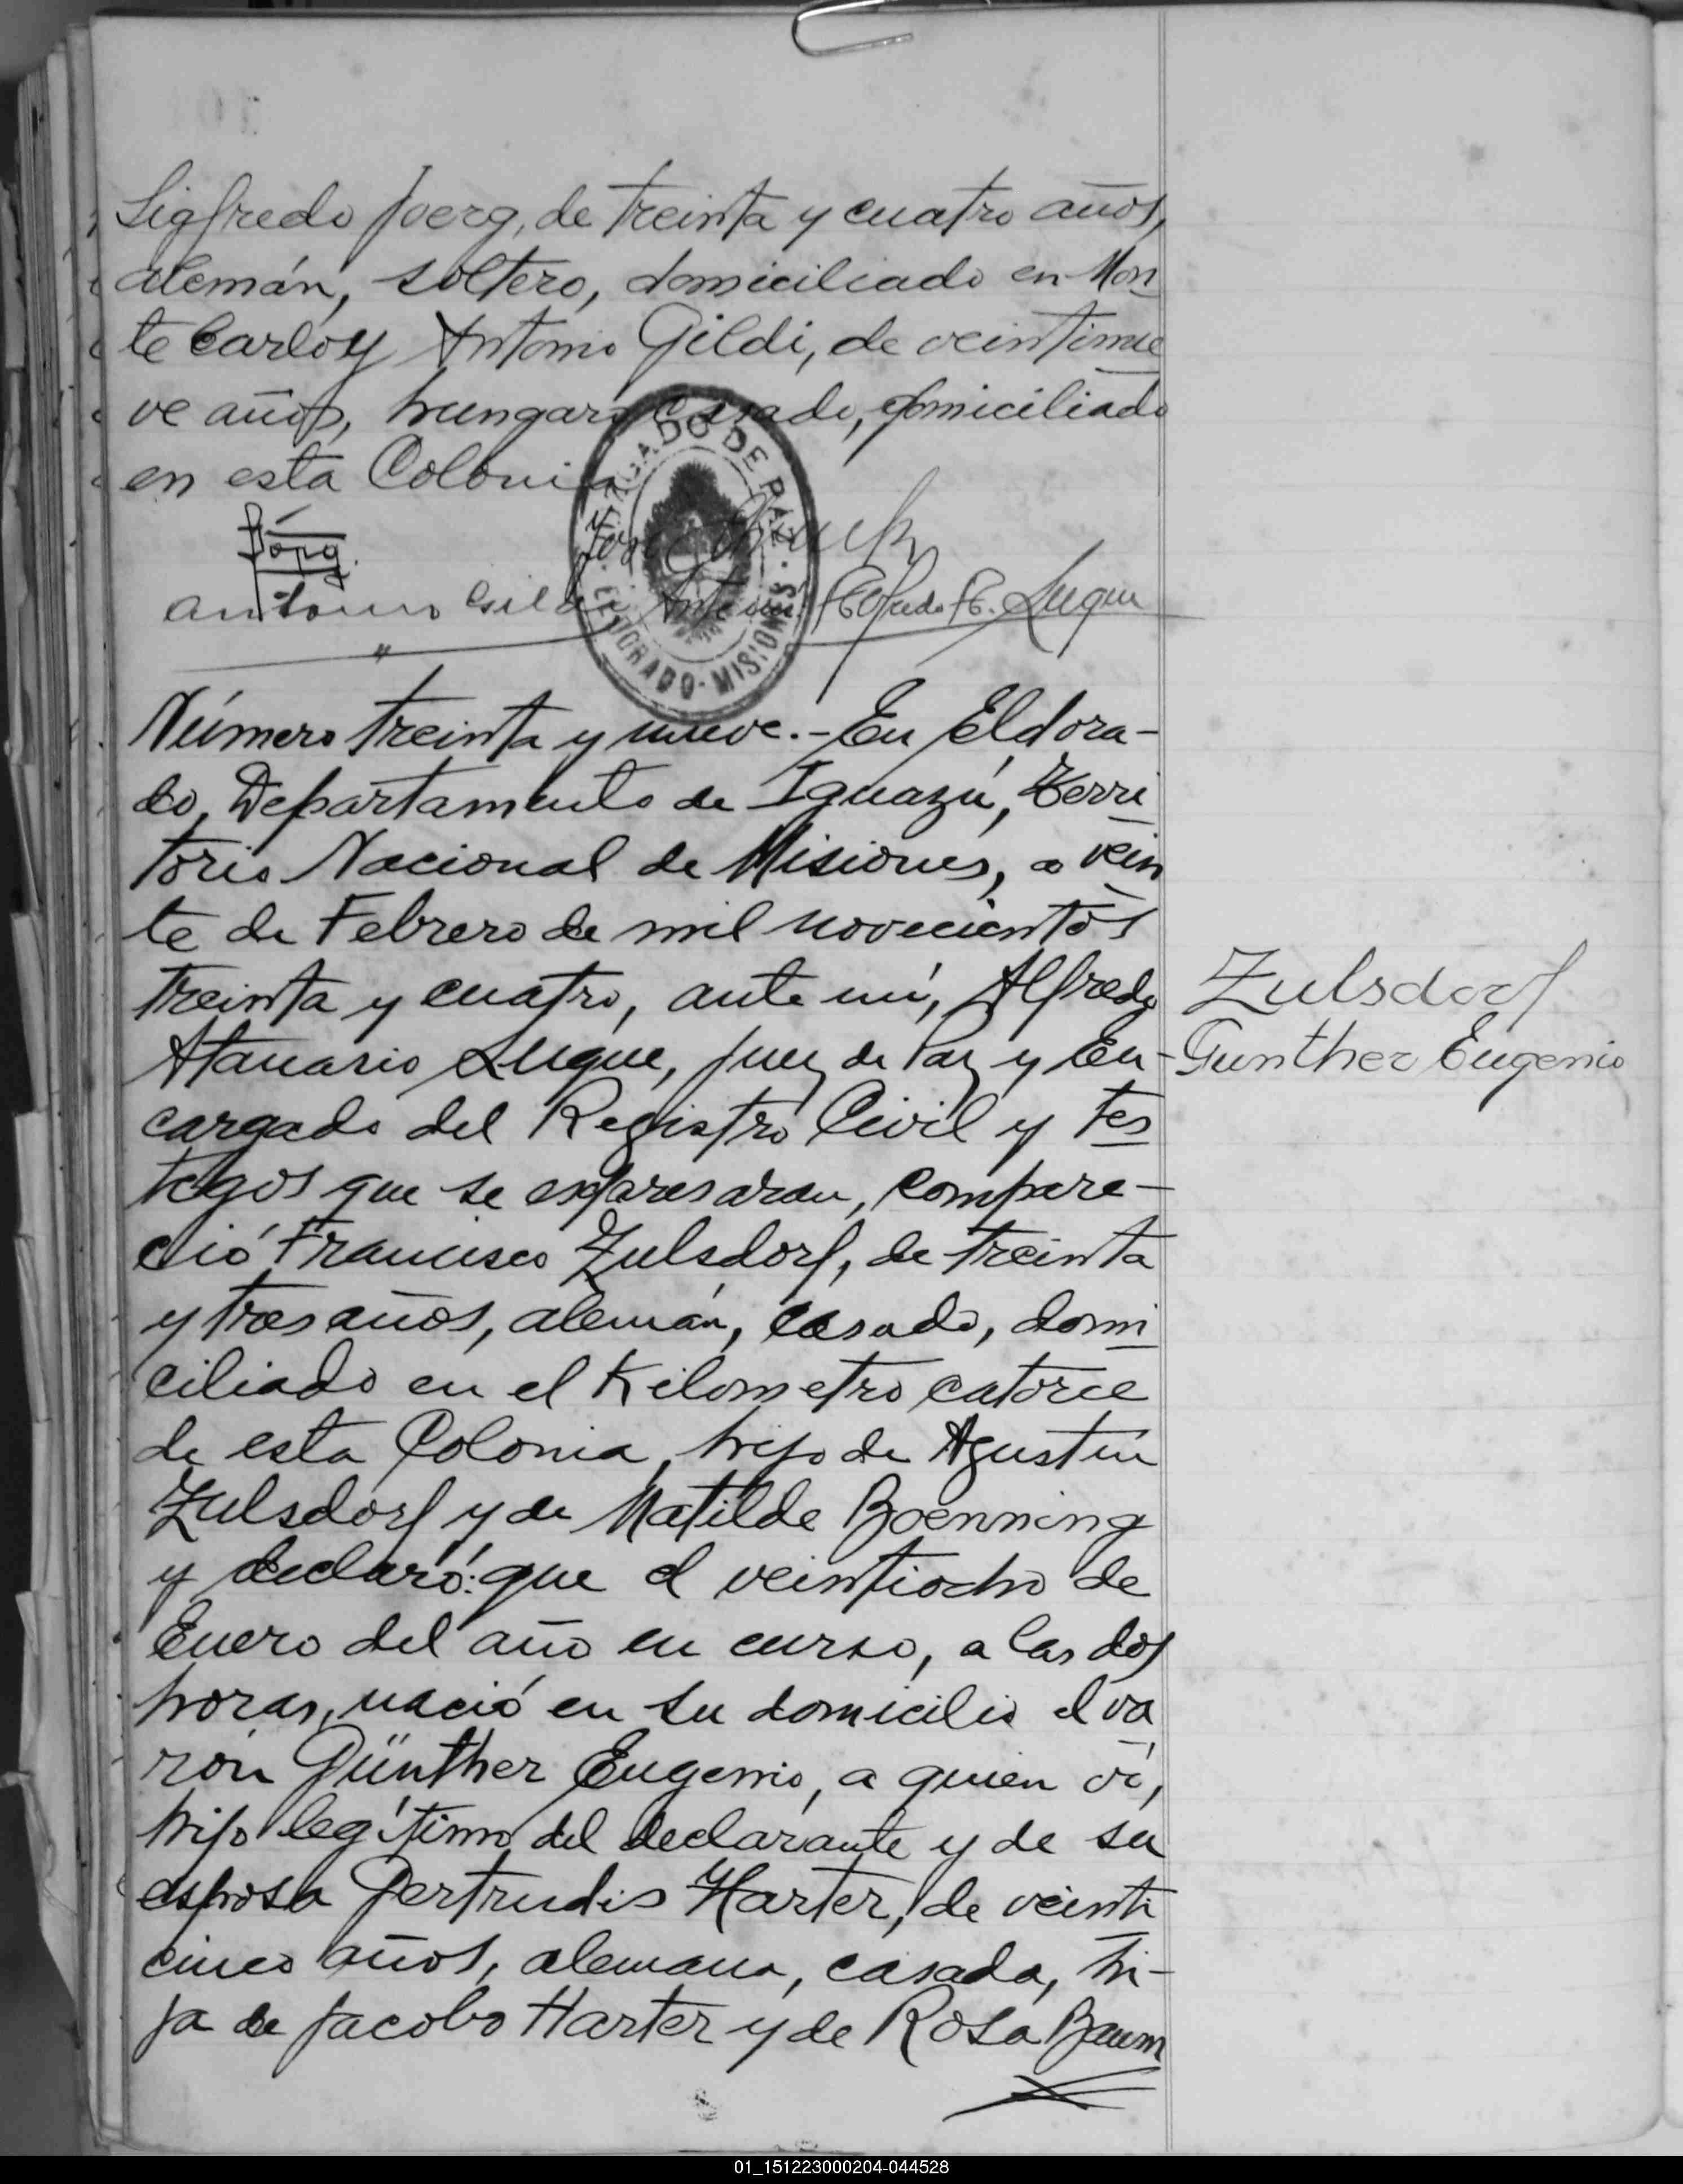 Sigfredo Joerg, de treinta y cuatro años,
alemán, soltero, domiciliado en Mon
te Carlo y Antonio Gildi, de veintinue
ve años, hungaro, casado, domiciliado
en esta Colonia
JUZGADO DE PAZ
ELDORADO - MISIONES
Antonio Gildi
Alfredo A. Luque
Número treinta y nueve.- En Eldora-
do, Departamento de Iguazú, Terri
torio Nacional de Misiones, a vein
te de Febrero de mil novecientos
treinta y cuatro, ante mí, Alfredo
Atanario Luque, Juez de Paz y En-
cargado del Registro Civil y tes
tigos que se expresaran, compare-
ció Francisco Zulsdorf, de treinta
y tres años, alemán, casado, domi
ciliado en el Kilometro catorce
de esta Colonia, hijo de Agustín
Zulsdorf y de Matilde Boenning
y declaró: que el veintiocho de
Enero del año en curso, a las dos
horas, nació en su domicilio el va
rón Günther Eugenio, a quien ví,
hijo legítimo del declarante y de su
esposa Gertrudis Harter, de veinti
cinco años, alemana, casada, hi-
ja de Jacobo Harter y de Rosa Baum
Zulsdorf
Gunther Eugenio
01_151223000204-044528